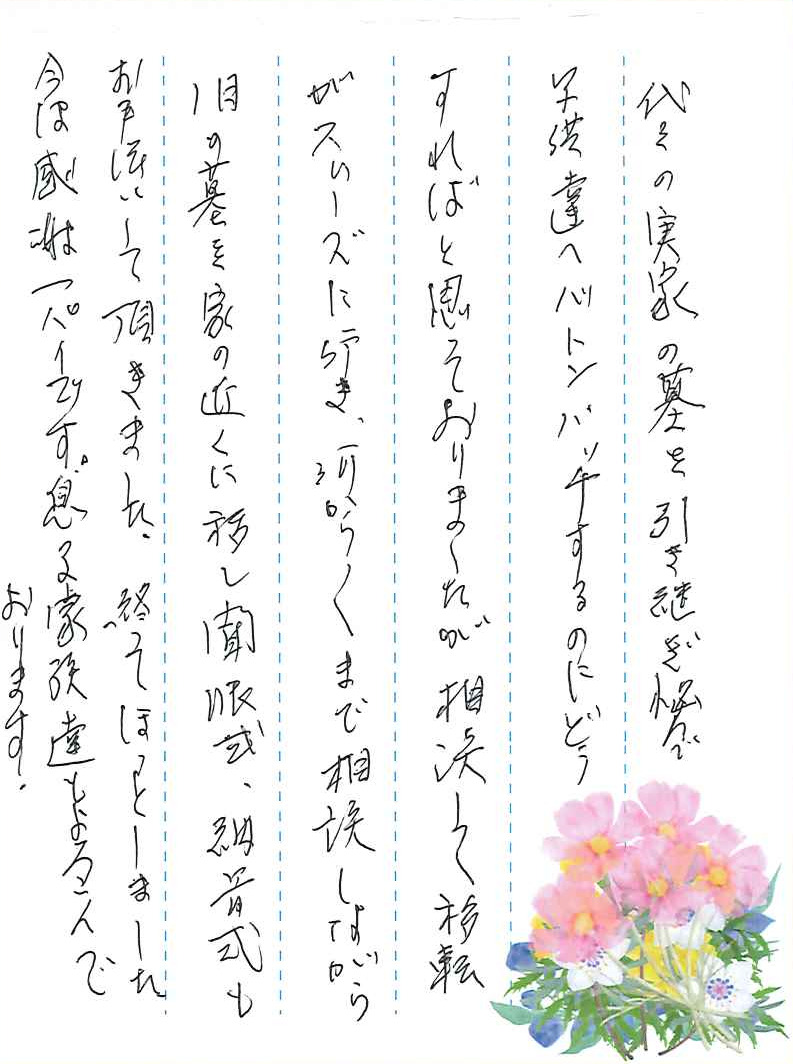 代々の実家の墓を引き継ぎ悩んで
子供達へバトンバッチするのにどう
すればと思っておりましたが相談して移転
がスムーズに行き、何から何まで相談しながら
1日の墓を家の近くに移し開眼式、納骨式も
お手伝いして頂きました、終ってほっとしました
今は感謝一パイです。息子家族達もよろこんで
おります.